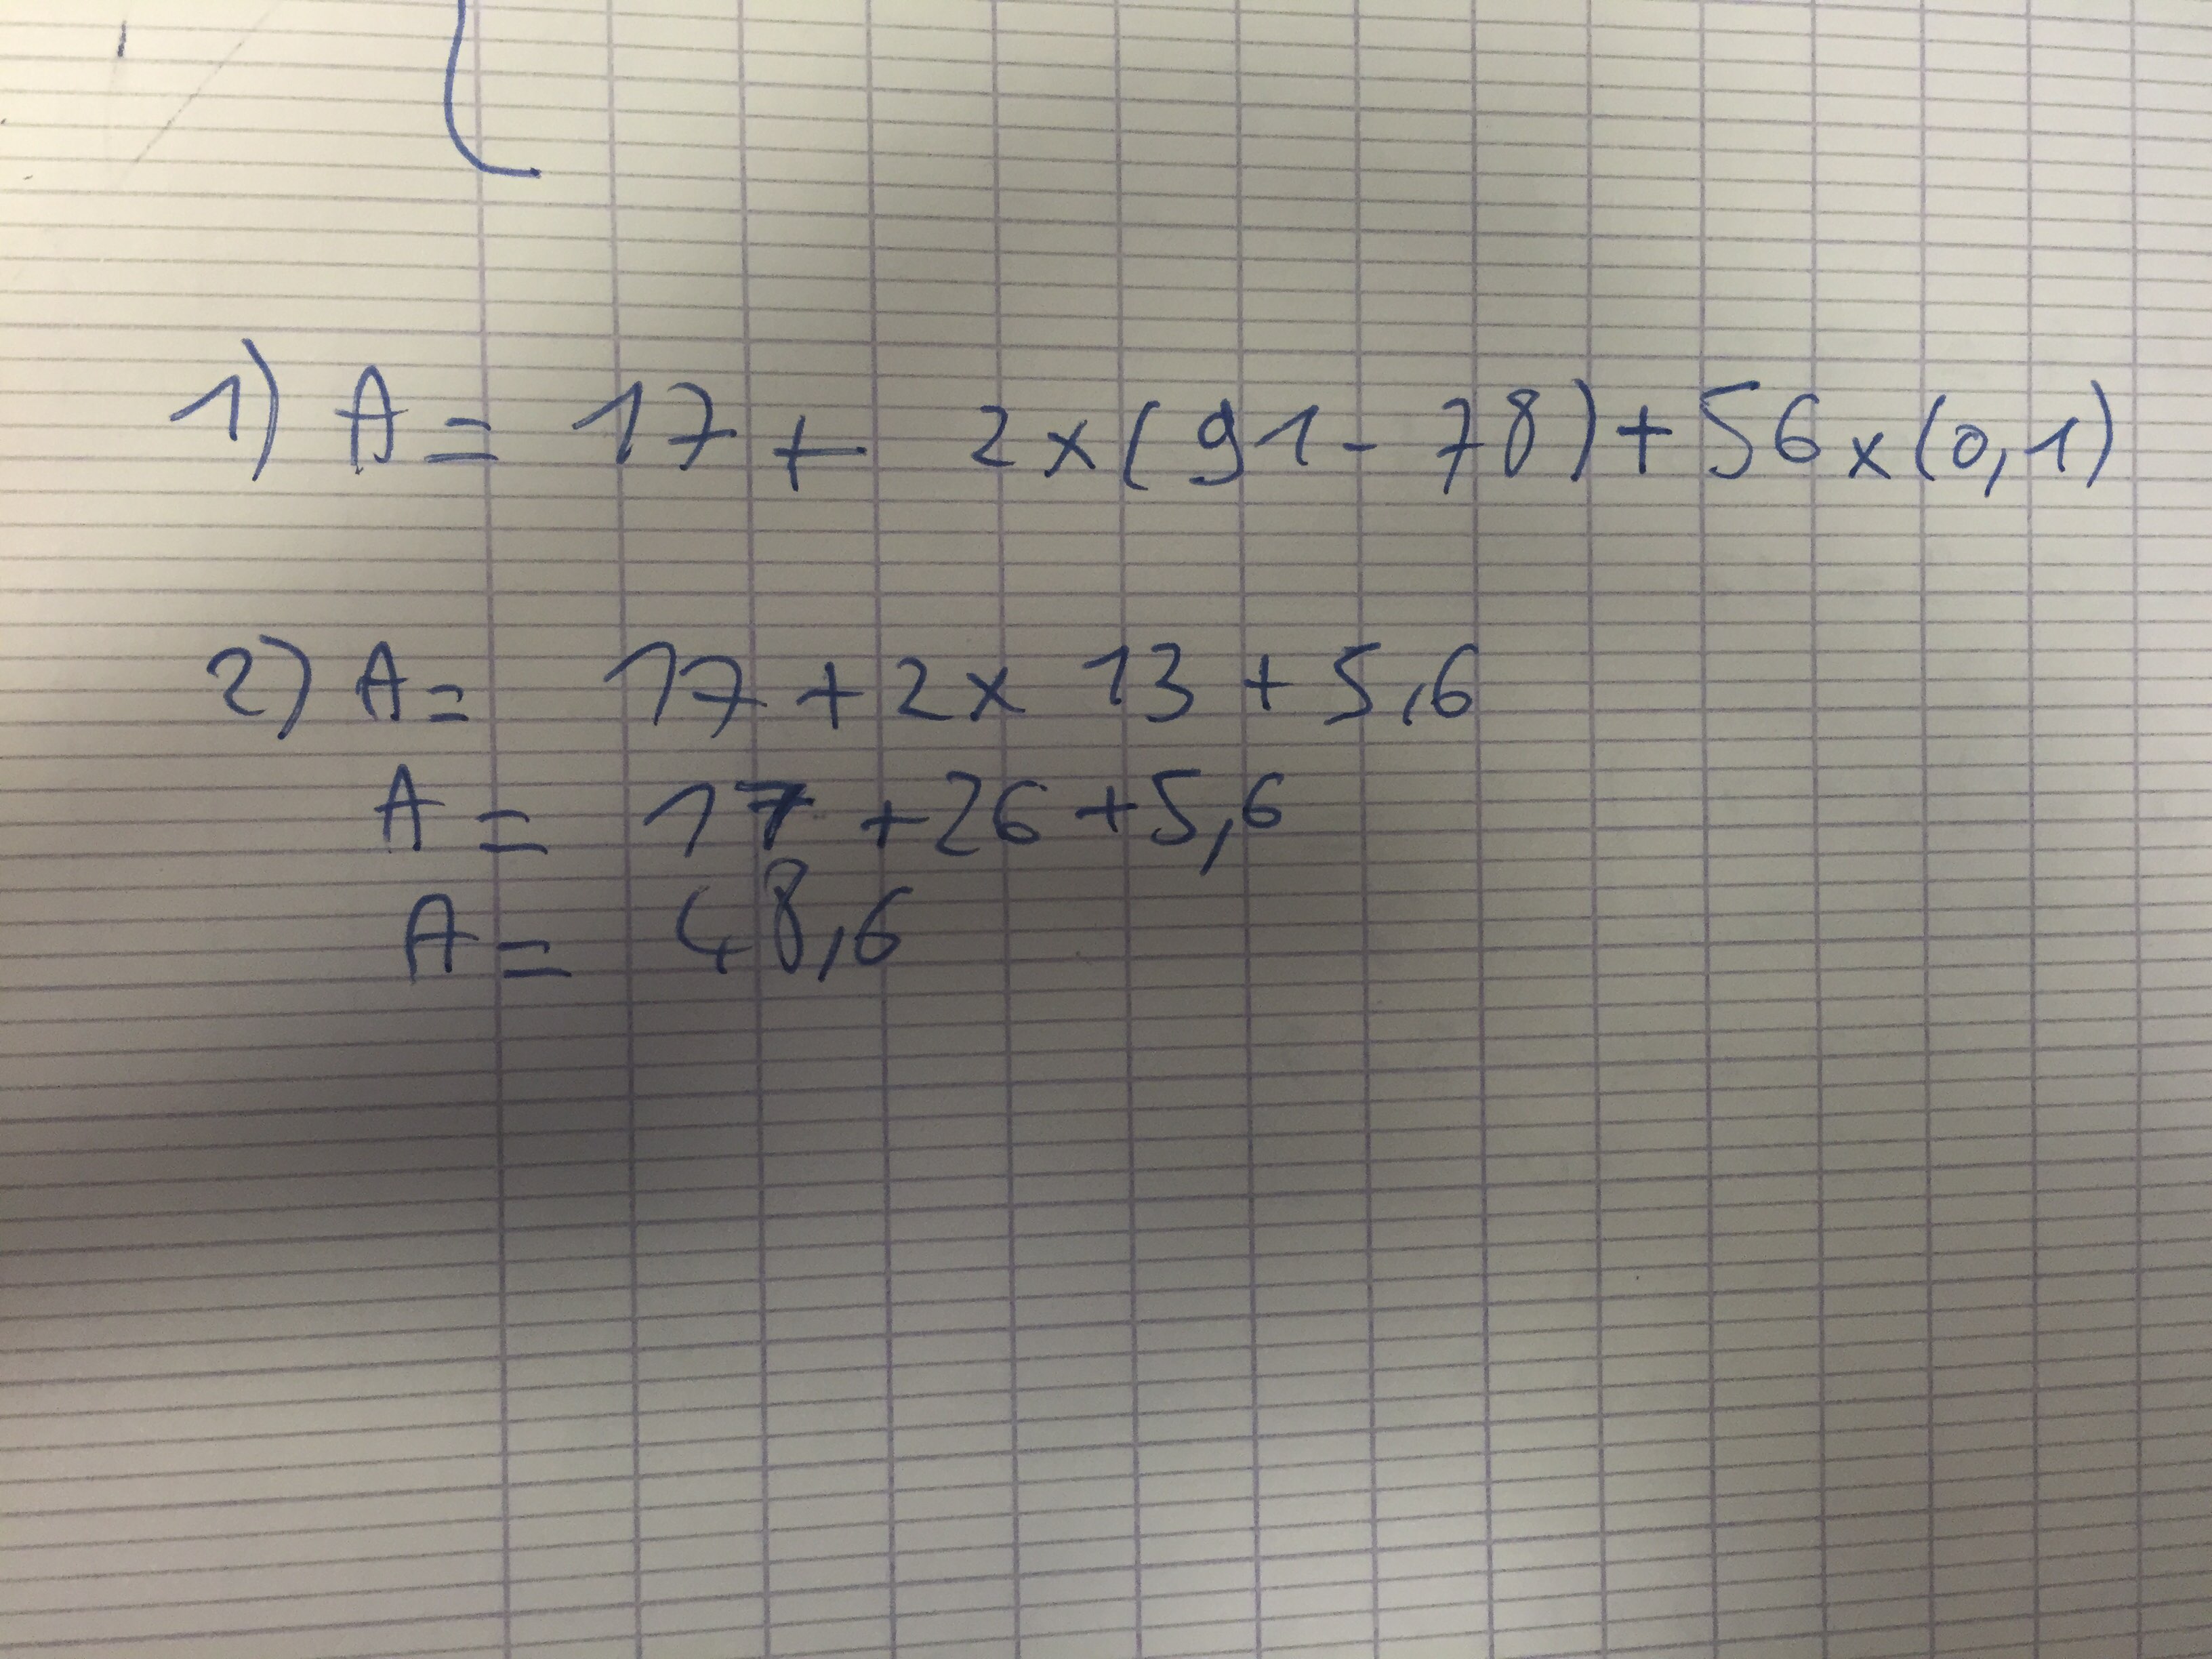 1) A = 17 + 2 x ( 91 - 78 ) + 56 x (0,1)
2) A = 17 + 2 x 13 + 5,6
A = 17 + 26 + 5,6
A = 48,6